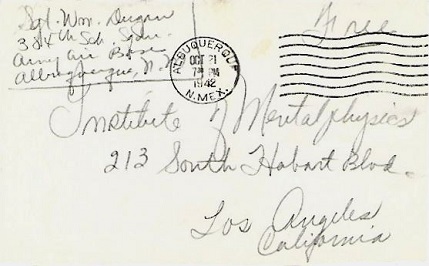 Sgt. Wm. Dugan
384th Sch. Sqdn.
Army Air Base
Albuquerque, N. M.
Free
ALBUQUERQUE
OCT 21
7 PM
1942
N. MEX.
Institute of Mentalphysics
213 South Hobart Blvd.
Los Angeles
California